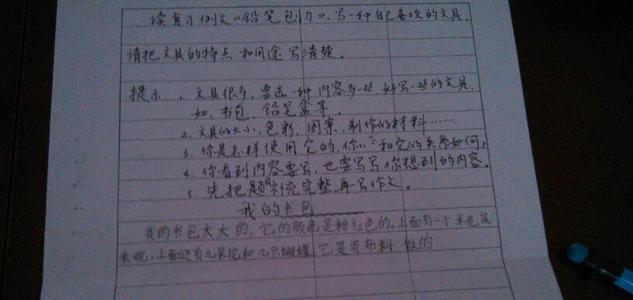 读复习例文《铅笔包刀》.写一种自己喜欢的文具.
请把文具的特点和用途写清楚。
提示 1、文具很多,要选一种内容多一些 好写一些的文具.
如,书包、铅笔盒等.
2、文具的大小、色彩、图案、制作的材料……
3、你是怎样使用它的,你 和它的关系如何?
4、你看到内容要写,也要写写你想到的内容。
5、先把题补充完整,再写作文。
我的书包
我的书包大大的,它的颜色是粉红色的.上面有一个米老鼠
上面还有几朵花和几只蝴蝶 它是用布料 做的